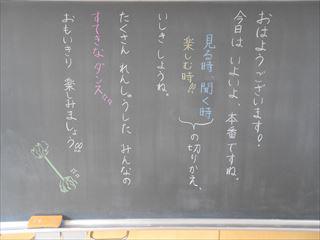 おはようございます!
今日は いよいよ、本番ですね。
見る時、聞く時
楽しむ時!!
の切りかえ、
いしき しようね。
たくさん れんしゅうした みんなの
すてきな ダンス!!
おもいきり 楽しみましょう!!